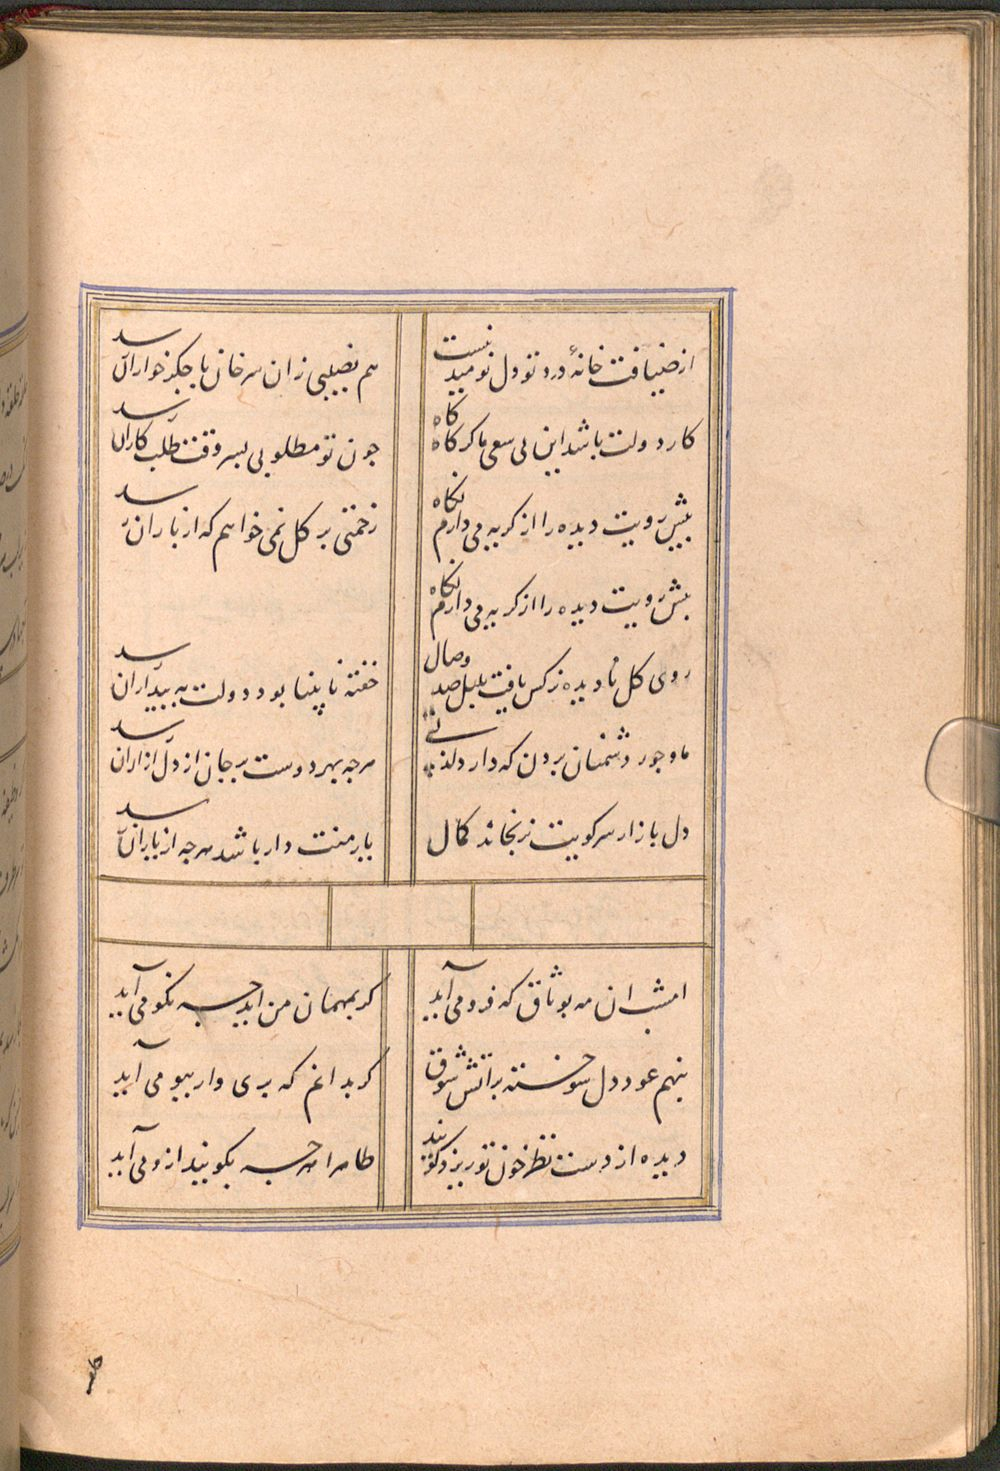 از ضیافت خانهٔ درد تو دل نومید نیست
هم نصیبی زان سر خان با جگر خواران رسد
کار دولت باشد این بی سعی ما کر کاه کاه
جون تو مطلوبی بسر وقت طلب کاران رسد
بیش رویت دیده را از کریه می دارم نکاه
زحمتی بر کل نمی خواهم که از باران رسد
بیش رویت دیده را از کریه می دارم نکاه
روی کل نادیده نرکس یافت بلبل صد وصال
خفته نابینا بود دولت به بیداران رسد
ما و جور دشمنان بردن که دارد لذتی
هرجه بهر دوست بر جان از دل ازاران رسد
دل بازار سر کویت نرنجاند کمال
یار منت دار باشد هرجه از یاران رسد
امشب ان مه بوثاق که فرو می آید
کر بمهمان من اید جه نکو می آید
بنهم عود دل سوخته بر اتش شوق
کر بدانم که بری وار ببو می آید
دیده از دست نظر خون تو ریزد کویند
ظاهرا هرجه بکویند ازو می آید